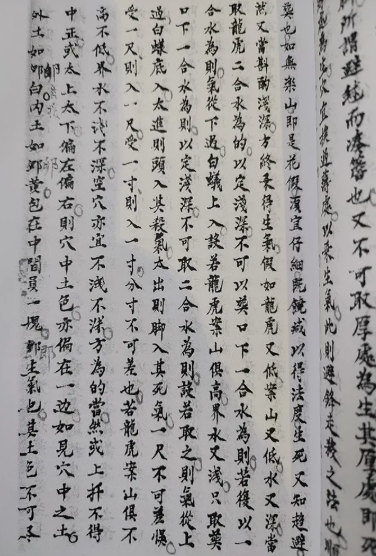 所謂避絃而湊簷也又不可取厚處為生其厚處即死
奠也如無樂山即是花假須宜仔細既鏡域以得法度生死又知趨避
然又當斟酌淺深方終乘得生氣假如龍虎又低案山又低水又深當
取龍虎二合水為的以定淺深不可以奠口下一合水為則若後以一
合水為則氣從下過白蟻上入設若龍虎案山俱高界水又淺只取奠
口下一合水為則以定淺深不可取二合水為則設若取之則氣從上
過白蟻底入太進則頭入其殺氣太出則脚入其死氣一尺不可差悞
受一尺則入一尺受一寸則入一寸分寸不可差也若龍虎案山俱不
高不低界水不淺不深望穴亦宜不淺不深方為的當然或上扦不得
中正或太上太下偏在偏右則穴中土色亦偏在一边如見穴中之土
外土如卵白内土如卵黄包在中間員一塊生氣也其土色不可